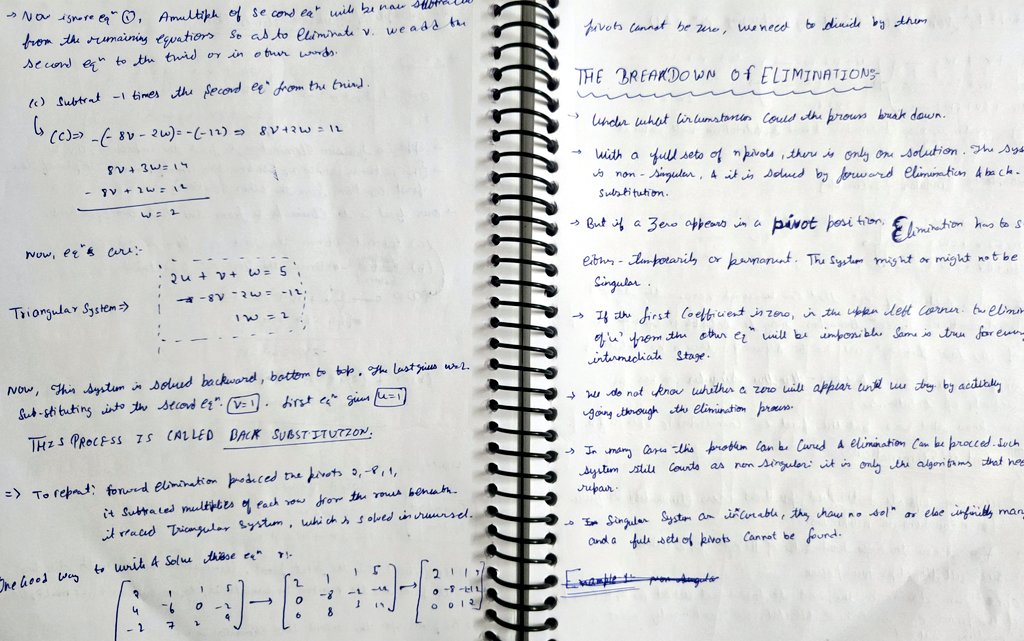 → Now ignore eqⁿ ①, A multiple of second eqⁿ will be now subtracted
from the remaining equations so as to eliminate v. we add the
second eqⁿ to the third or in other words.
(c) Subtrat -1 times the second eqⁿ from the third.
(c) => -(-8v - 2w) = -(-12) => 8v+2w = 12
8v + 3w = 14
- 8v + 2w = 12
w = 2
Now, eqⁿs are:-
2u + v + w = 5
-8v - 2w = -12
1w = 2
Triangular System =>
Now, This system is solved backward, bottom to top. The last gives w=2.
Sub-stituting into the second eqⁿ. v=1. first eqⁿ gives u=1
THIS PROCESS IS CALLED BACK SUBSTITUTION.
=> To repeat: forward elimination produced the pivots 2, -8, 1,
it subtraced multiples of each row from the rows beneath.
it reaced Triangular System, which is solved in reverse.
One Good way to write & solve these eqⁿ
2 1 1 5
4 -6 0 -2
-2 7 2 9
→
2 1 1 5
0 -8 -2 -12
0 8 3 14
→
2 1 1 5
0 -8 -2 -12
0 0 1 2
pivots cannot be zero, we need to divide by them
THE BREAKDOWN OF ELIMINATION:-
→ Under what circumstances could the process break down.
→ With a full sets of n pivots, there is only one solution. The sys
is non-singular, & it is solved by forward elimination & back-
substitution.
→ But if a zero appears in a pivot position, Elimination has to s
either - temporarily or permanent. The system might or might not be
Singular.
→ If the first coefficient is zero, in the upper left corner. the elimin
of 'u' from the other eqⁿ will be impossible same is true for every
intermediate stage.
→ We do not know whether a zero will appear until we try by actually
going through the elimination process.
→ In many cases this problem can be cured & elimination can be proceed. Such
system still counts as non singular: it is only the algorithms that nee
repair.
→ Singular System are incurable, they have no solⁿ or else infinitely man
and a full sets of pivots cannot be found.
Example 1: non singula